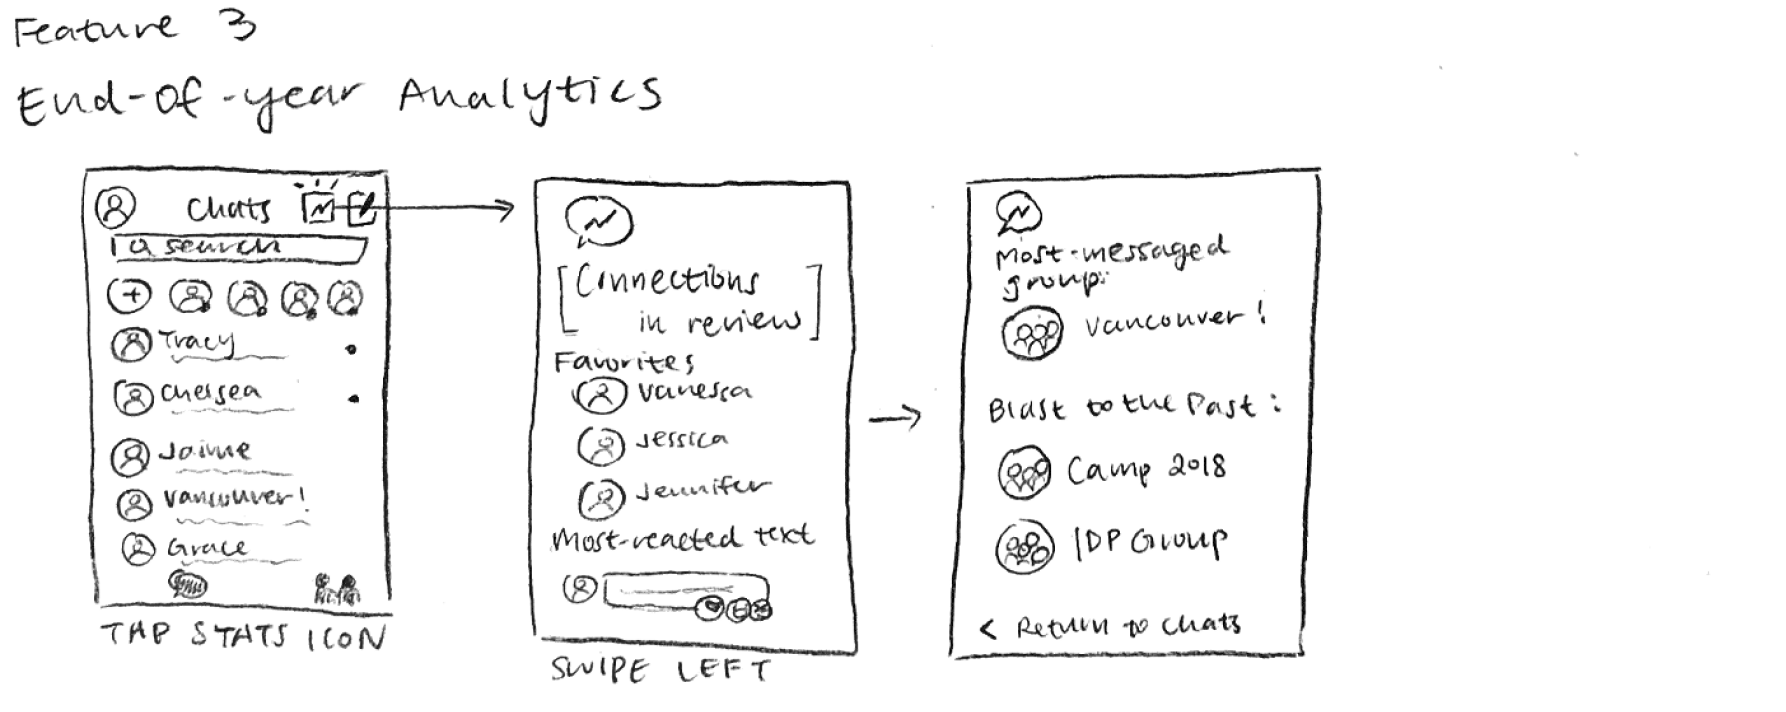 Feature 3
End-of-year Analytics
Chats
search
Tracy
Chelsea
Jaime
Vancouver!
Grace
TAP STATS ICON
[Connections
in review]
Favorites
Vanessa
Jessica
Jennifer
Most-reacted text
SWIPE LEFT
Most-messaged
group:
Vancouver!
Blast to the Past:
Camp 2018
IDP Group
< Return to chats